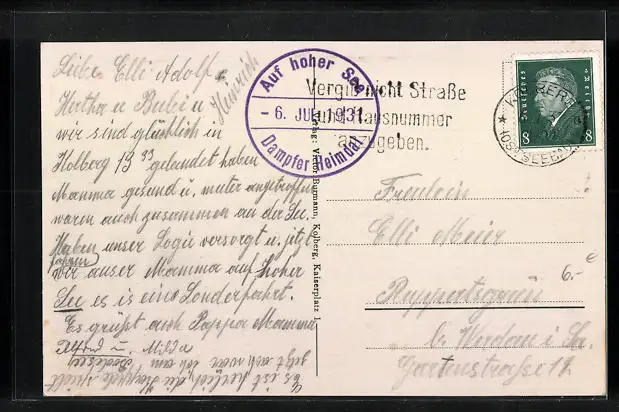 Liebe Elli Adolf u
Heinrich
Hertha u Bubi u
wir sind glücklich in
Kolberg 19 33 gelendet haben
Mamma gesund u. munter angetroffen
waren auch zusammen an der See.
Haben unser Logie versorgt u. jetzt
fahren
wir unser Mamma auf hoher
See es is eine Sonderfahrt.
Es grüßt auch Pappa Mamma
Alfred u. Milda
Es ist herlich, die
jetzt ach war ich am
Auf hoher See
- 6. JUL 1931
Dampfer Heimdal
Vergiß nicht Straße
und Hausnummer
anzugeben.
KOLBERG
(OSTSEEBAD)
Deutsches Reich
8 8
Verlag: Victor Burmann, Kolberg, Kaiserplatz 1.
Fräulein
Elli Meier
6.- €
Ruppertsgrün
b. Werdau i. Sa.
Gartenstrasse 17.